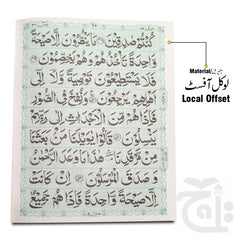 كُنْتُمْ صٰدِقِيْنَ مَا يَنْظُرُوْنَ اِلَّا صَيْحَةً
وَّاحِدَةً تَاْخُذُهُمْ وَهُمْ يَخِصِّمُوْنَ
فَلَا يَسْتَطِيْعُوْنَ تَوْصِيَةً وَّلَاۤ اِلٰۤى
اَهْلِهِمْ يَرْجِعُوْنَ وَنُفِخَ فِى الصُّوْرِ
فَاِذَا هُمْ مِّنَ الْاَجْدَاثِ اِلٰى رَبِّهِمْ
يَنْسِلُوْنَ قَالُوْا يٰوَيْلَنَا مَنْۢ بَعَثَنَا
مِنْ مَّرْقَدِنَا هٰذَا مَا وَعَدَ الرَّحْمٰنُ
وَصَدَقَ الْمُرْسَلُوْنَ اِنْ كَانَتْ
اِلَّا صَيْحَةً وَّاحِدَةً فَاِذَا هُمْ جَمِيْعٌ
Material/میٹریل
لوکل آفسٹ
Local Offset